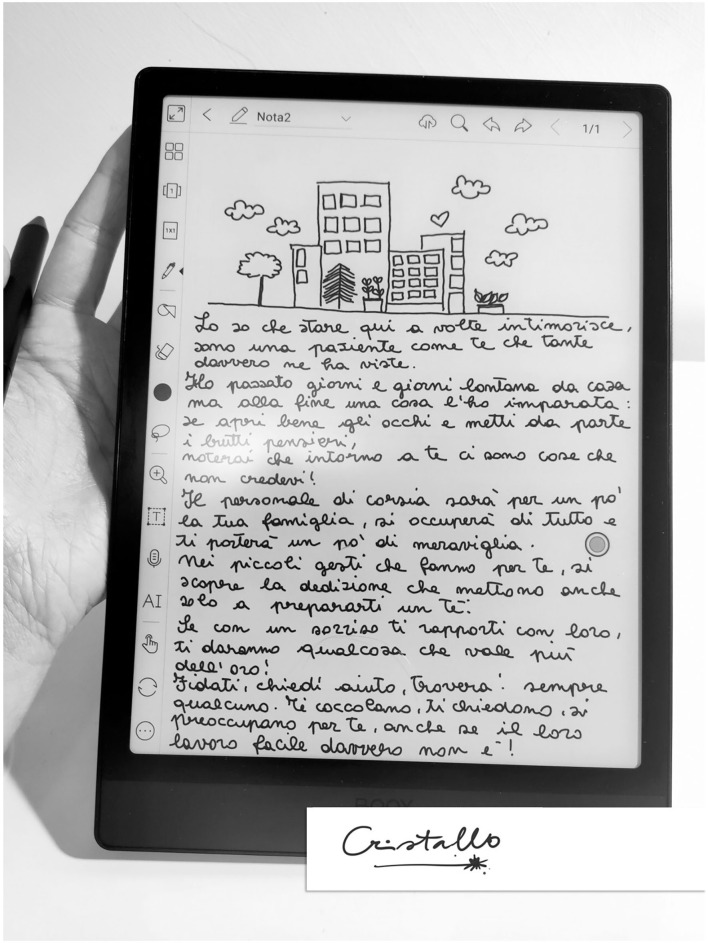 Nota2
1/1
Lo so che stare qui a volte intimorisce,
sono una paziente come te che tante
davvero ne ha viste.
Ho passato giorni e giorni lontana da casa
ma alla fine una cosa l'ho imparata:
se apri bene gli occhi e metti da parte
i brutti pensieri,
noterai che intorno a te ci sono cose che
non credevi!
Il personale di corsia sarà per un po'
la tua famiglia, si occuperà di tutto e
ti porterà un po' di meraviglia.
Nei piccoli gesti che fanno per te, si
scopre la dedizione che mettono anche
solo a prepararti un tè.
Se con un sorriso ti rapporti con loro,
ti daranno qualcosa che vale più
dell'oro!
Fidati, chiedi aiuto, troverai sempre
qualcuno. Ti coccolano, ti chiedono, si
preoccupano per te, anche se il loro
lavoro facile davvero non è!
AI
BOOX
Cristallo